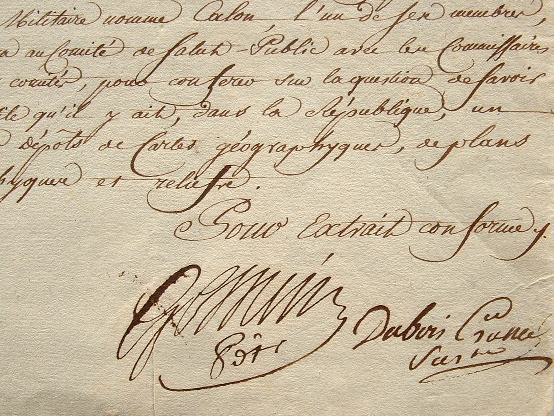 Militaire nomme Calon, l'un de ses membres,
au Comité de Salut-Public avec les Commissaires
comités, pour conférer sur la question de savoir
qu'il y ait, dans la République, un
dépôts de Cartes géographiques, de plans
et reliefs.
Pour Extrait conforme
Dubois Crancé